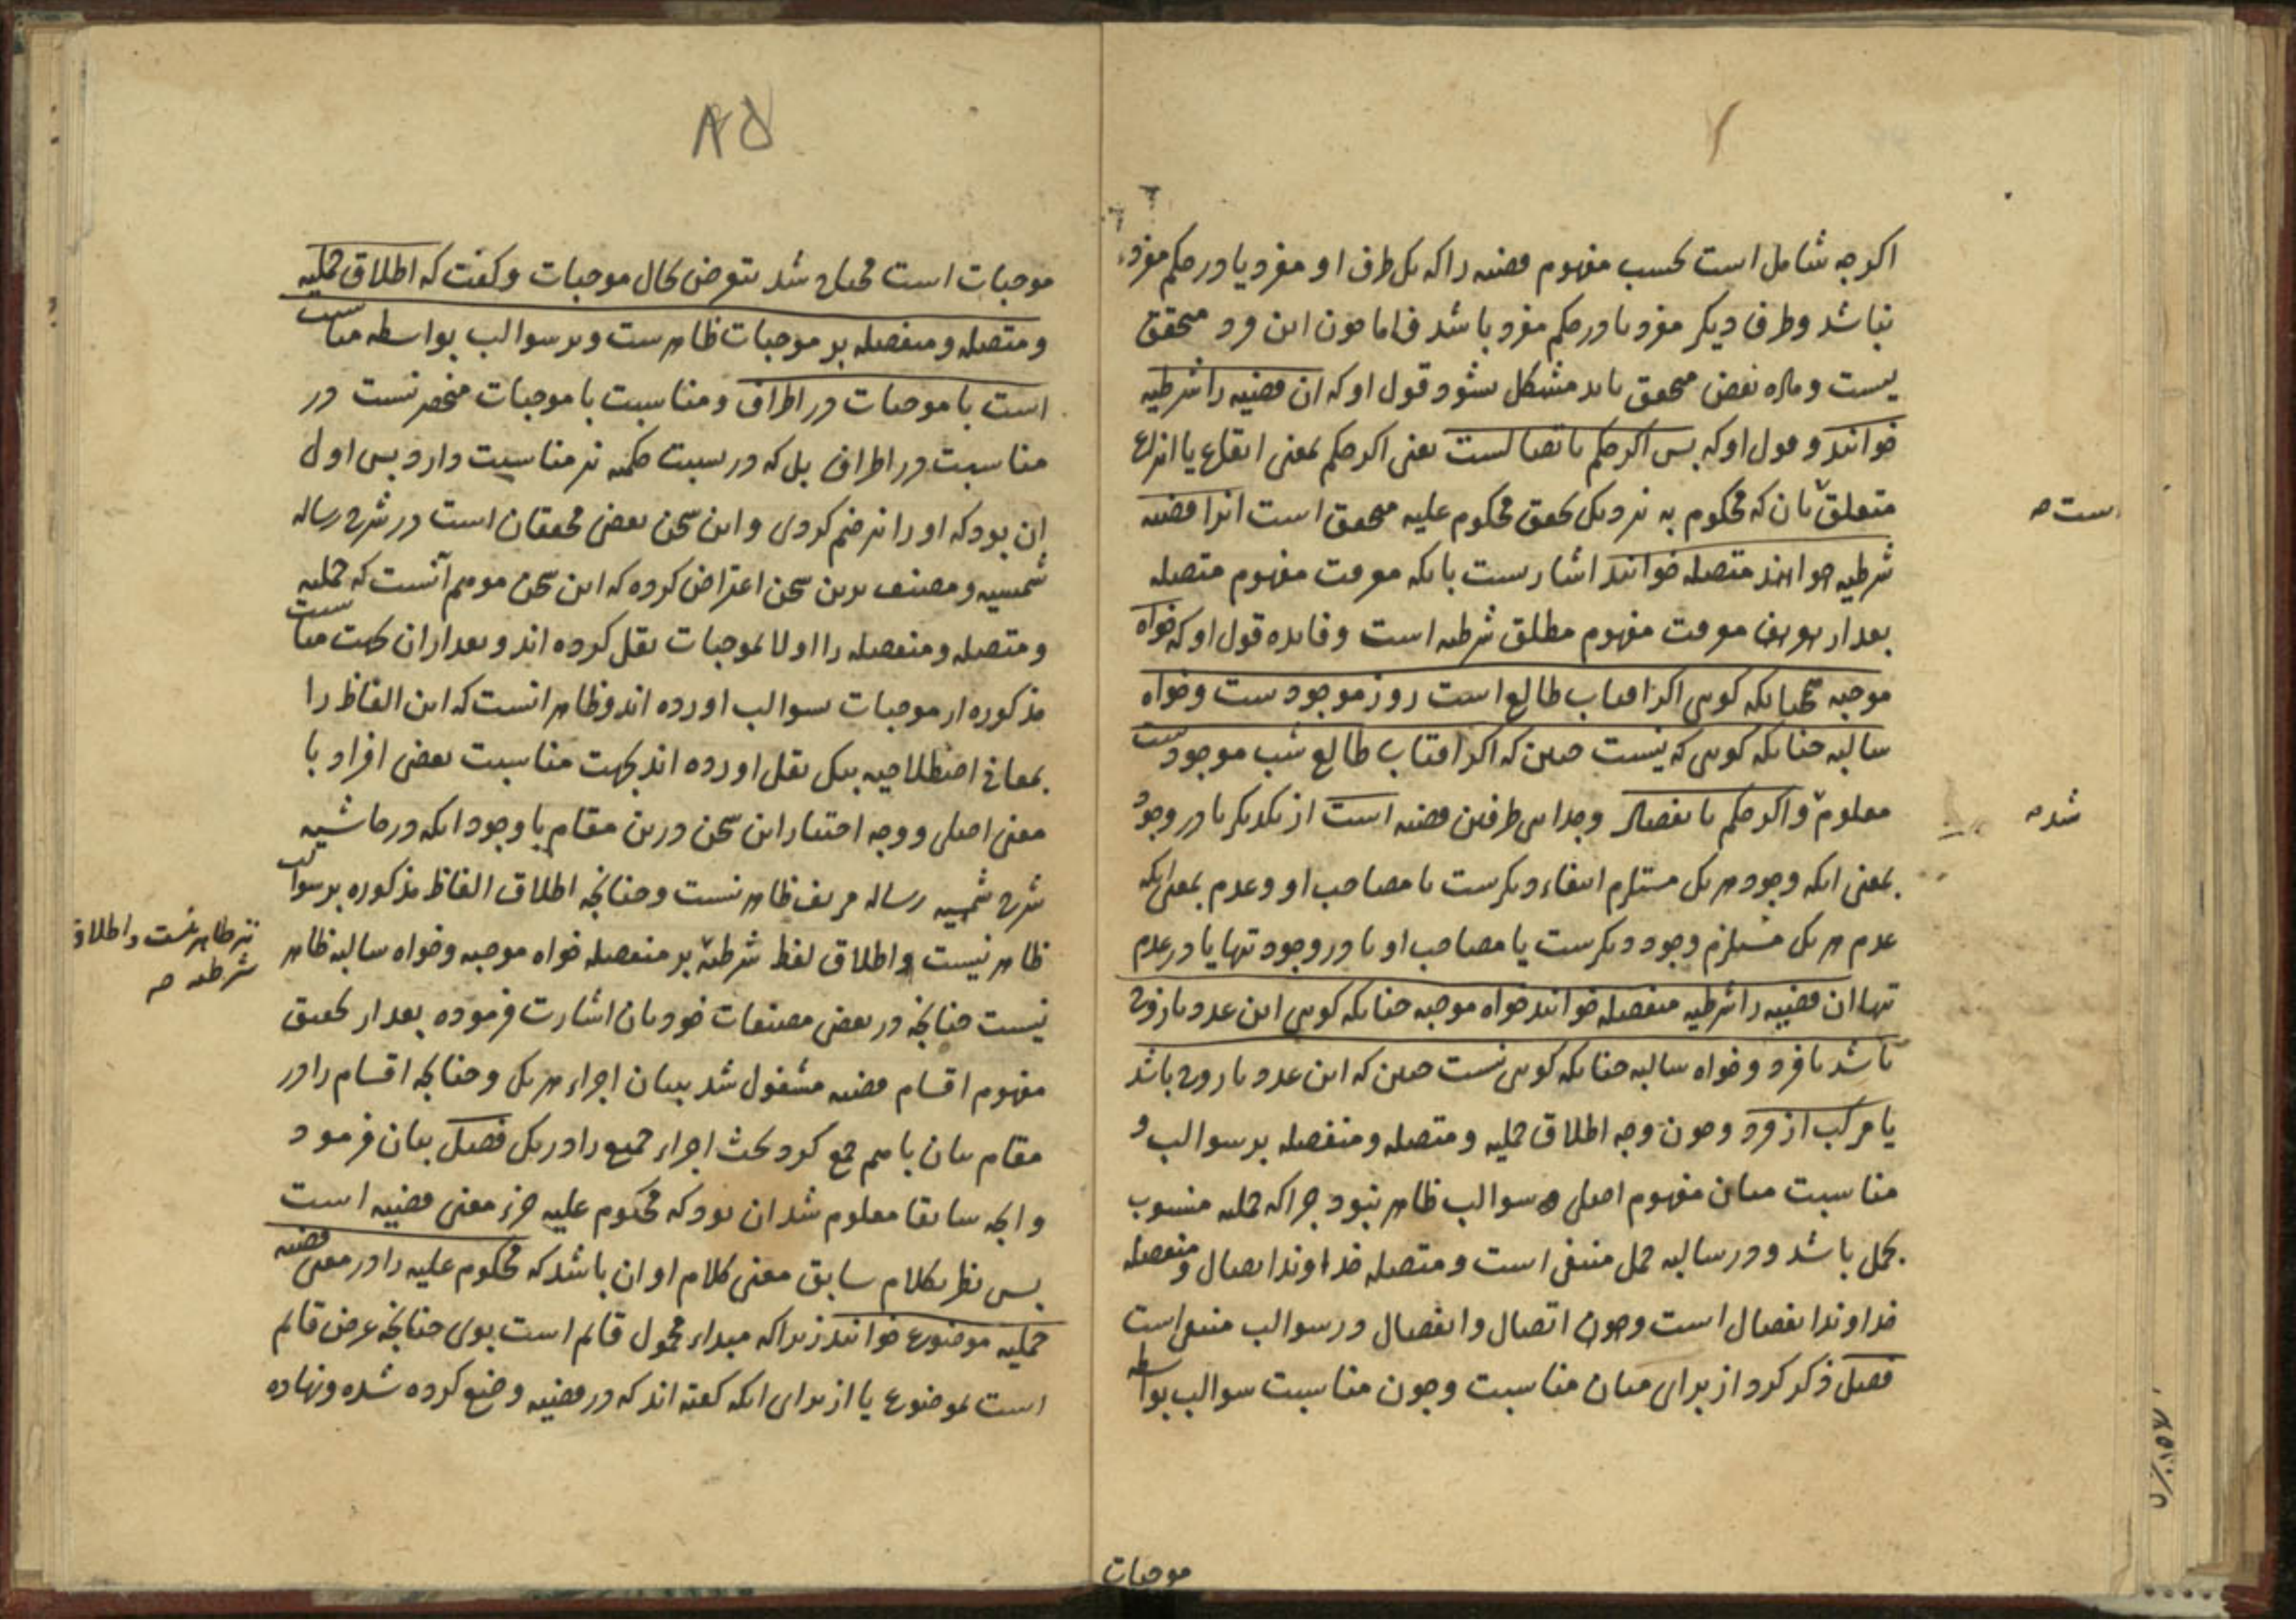 اکرچه شامل است بحسب مفهوم قضیه را که یک طرف او مفرد یا در حکم مفرد
نباشد وطرف دیکر مفرد یا در حکم مفرد باشد فاما چون این فرد متحقق
نیست وماده نقض متحقق باید مشکل نشود قول او که ان قضیه را شرطیه
خوانند وقول او که پس اکر حکم باتصالست یعنی اکر حکم بمعنی ایقاع یا انتزاع
متعلق بان که محکوم به نزدیک تحقق محکوم علیه متحقق است انرا قضیه
است صح
شرطیه خوانند متصله خوانند اشارتست بانکه معرفت مفهوم متصله
بعد از معرفت مفهوم مطلق شرطیه است وفایده قول او که خواه
موجبه همچنانکه کویی اکر افتاب طالع است روز موجودست وخواه
سالبه چنانکه کویی که نیست چنین که اکر افتاب طالع شب موجود ست
معلوم واکر حکم بانفصال وجدایی طرفین قضیه است از یکدیکر یا در وجود
شد صح
بمعنی انکه وجود هر یک مستلزم انتفاء دیکرست یا مصاحب او وعدم بمعنی انکه
عدم هر یک مستلزم وجود دیکرست یا مصاحب او یا در وجود تنها یا در عدم
تنها ان قضیه را شرطیه منفصله خوانند خواه موجبه چنانکه کویی این عدد یا زوج
باشد یا فرد وخواه سالبه چنانکه کویی نیست چنین که این عدد یا زوج باشد
یا مرکب از فرد وچون وجه اطلاق حملیه ومتصله ومنفصله بر سوالب و
مناسبت میان مفهوم اصلی و سوالب ظاهر نبود چرا که حملیه منسوب
بحمل باشد ودر سالبه حمل منتفی است ومتصله خداوند اتصال ومنفصله
خداوند انفصال است وچون اتصال وانفصال در سوالب منتفی است
فصل ذکر کرد از برای میان مناسبت وچون مناسبت سوالب بواسطه
موجبات
۸۵
موجبات است محتاج شد بتعرض بحال موجبات وکفت که اطلاق حملیه
ومتصله ومنفصله بر موجبات ظاهرست وبر سوالب بواسطه مناسبت
است با موجبات در اطراف ومناسبت با موجبات منحصر نیست در
مناسبت در اطراف بل که در نسبت حکمیه نیز مناسبت دارد پس اولی
ان بود که او را نیز ضم کردی واین سخن بعض محققان است در شرح رساله
شمسیه ومصنف برین سخن اعتراض کرده که این سخن موهم آنست که حملیه
ومتصله ومنفصله را اولا بموجبات نقل کرده اند وبعد ازان بجهت مناسبت
مذکوره از موجبات بسوالب اورده اند وظاهر انست که این الفاظ را
بمعانی اصطلاحیه بیک نقل اورده اند بجهت مناسبت بعض افراد با
معنی اصلی ووجه اختیار این سخن درین مقام با وجود انکه در حاشیه
شرح شمسیه رساله مزیف ظاهر نیست وچنانچه اطلاق الفاظ مذکوره بر سوالب
ظاهر نیست واطلاق لفظ شرطیه بر منفصله خواه موجبه وخواه سالبه ظاهر
نیز ظاهر نیست واطلاق
شرطیه صح
نیست چنانچه در بعض مصنفات خود بان اشارت فرموده بعد از تحقیق
مفهوم اقسام قضیه مشغول شد ببیان اجزاء هر یک وچنانچه اقسام را در
مقام بیان باهم جمع کرد بحث اجزاء جمیع را در یک فصل بیان فرمود
وانچه سابقا معلوم شد ان بود که محکوم علیه جزء معنی قضیه است
پس نظر بکلام سابق معنی کلام او ان باشد که محکوم علیه را در معنی قضیه
حملیه موضوع خوانند زیرا که مبداء محمول قائم است بوی چنانچه عرض قائم
است بموضوع یا از برای انکه کفته اند که در قضیه وضع کرده شده ونهاده